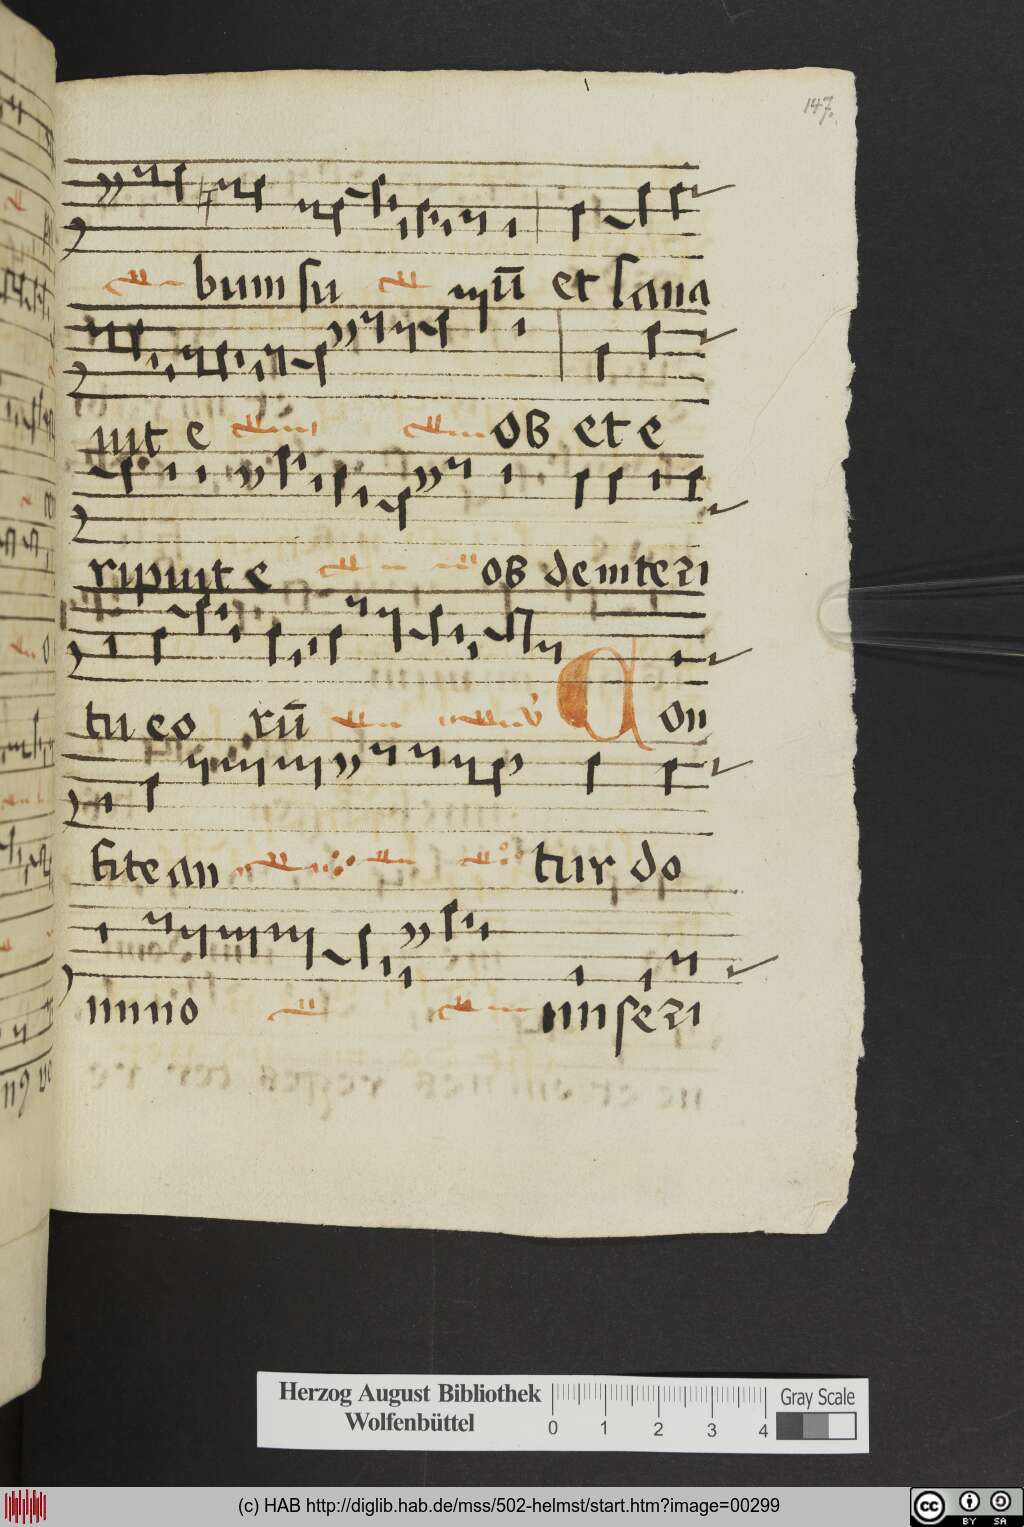 147.
bum su um̄ et sana
uit e os et e
ripuit e os de interi
tu eo rū V Con
fitean tur do
mino miseri
Herzog August Bibliothek
Wolfenbüttel
0 1 2 3 4
Gray Scale
(c) HAB http://diglib.hab.de/mss/502-helmst/start.htm?image=00299
cc BY SA